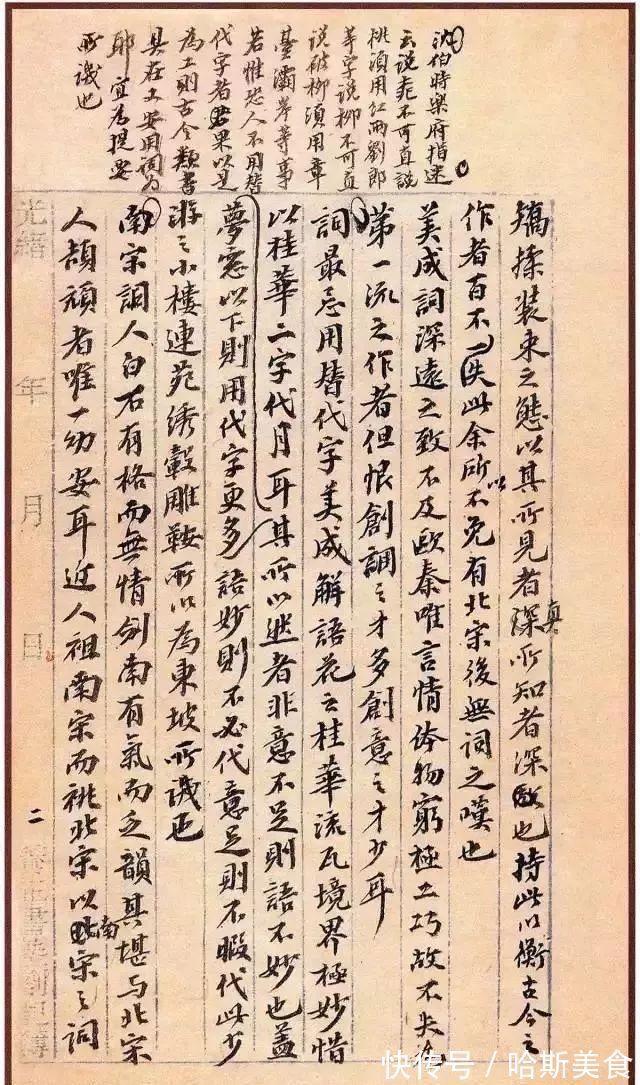 沈伯時樂府指迷
云說桃不可直說
桃須用紅雨劉郎
等字說柳不可直
說破柳須用章
臺灞岸等事
若惟恐人不用替
代字者果以是
為工則古今類書
具在又安用詞為
耶宜為提要
所譏也
矯揉裝束之態以其所見者真所知者深故也持此以衡古今之
作者百不一失此余所以不免有北宋後無詞之嘆也
美成詞深遠之致不及歐秦唯言情体物窮極工巧故不失為
第一流之作者但恨創調之才多創意之才少耳
詞最忌用替代字美成解語花云桂華流瓦境界極妙惜
以桂華二字代月耳其所以然者非意不足則語不妙也蓋
夢窓以下則用代字更多語妙則不必代意足則不暇代此少
游之小樓連苑綉轂雕鞍所以為東坡所譏也
南宋詞人白石有格而無情劍南有氣而乏韻其堪与北宋
人頡頏者唯一幼安耳近人祖南宋而祧北宋以南宋之詞
光緒 年 月 日
二
快传号/哈斯美食